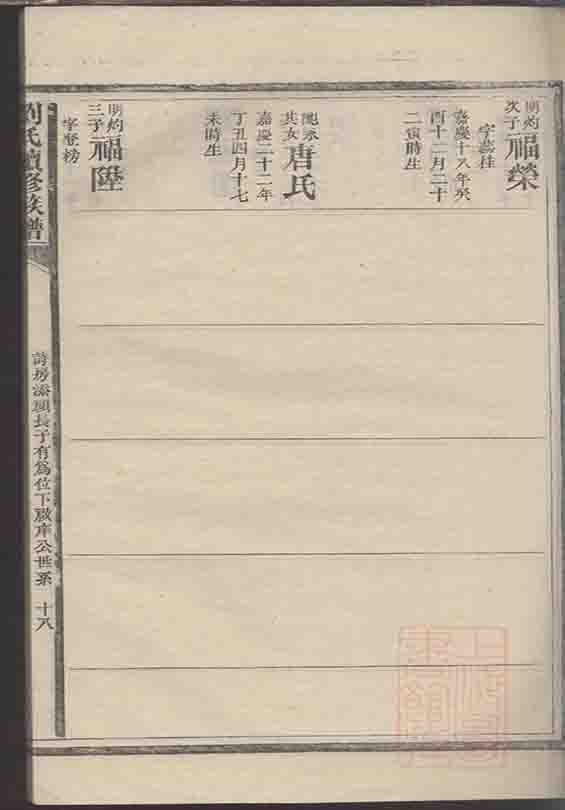 明灼
次子
福榮
字蕊桂
嘉慶十八年癸
酉十二月二十
二寅時生
其女
唐氏
嘉慶二十二年
丁丑四月十七
未時生
明灼
三子
福陞
字登榜
劉氏續修族譜
詩房添順長子有爲位下職庠公世系
十八
上海圖書館藏